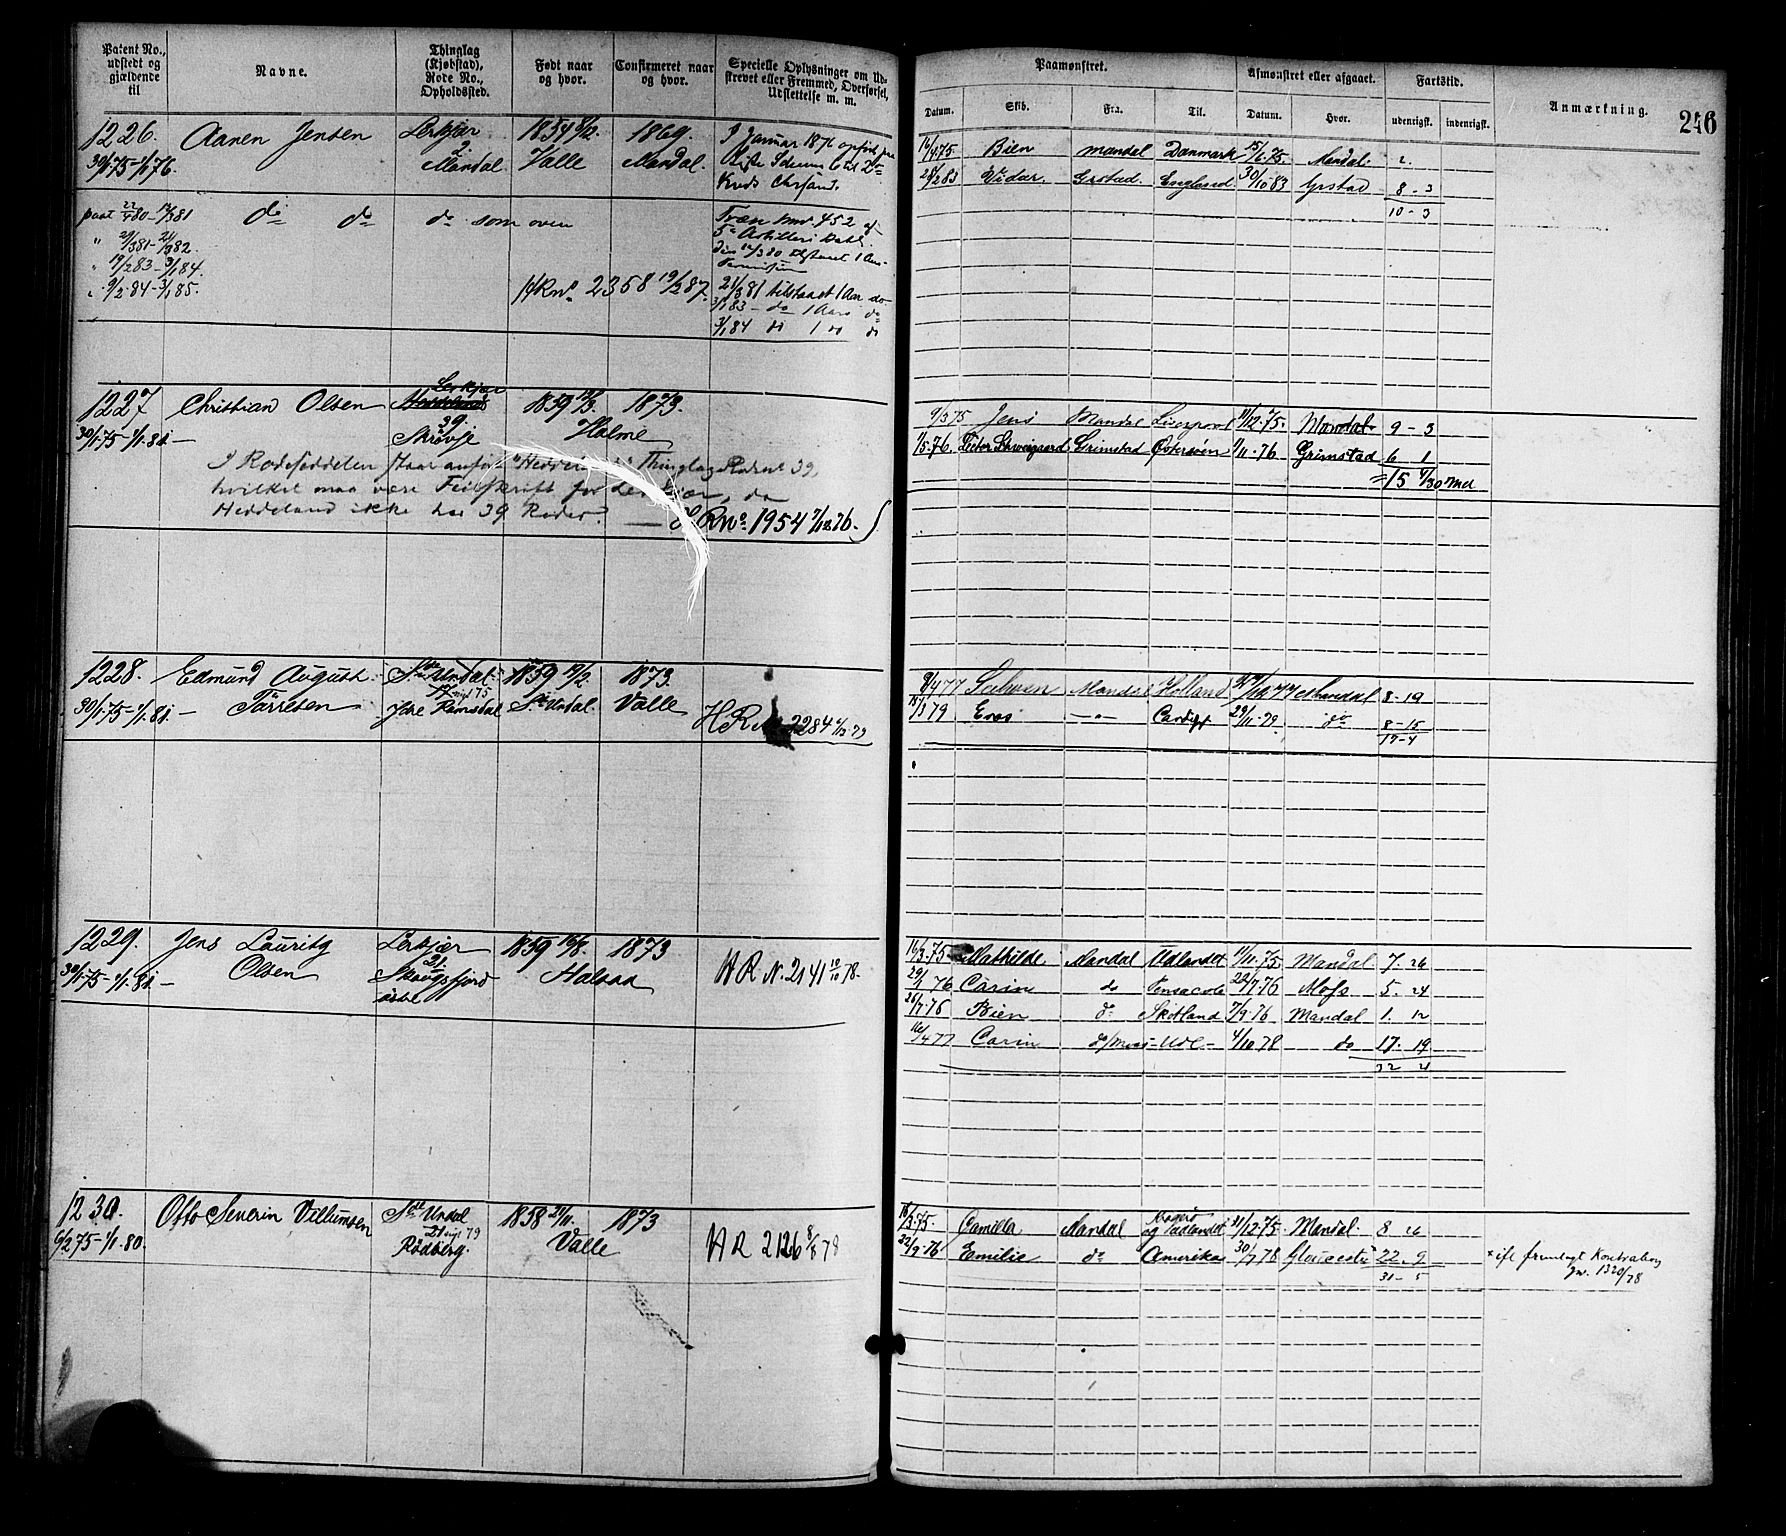 Patent No., udstedt og gjældende til
Navne.
Thinglag (Kjøbstad), Rode No., Opholdssted.
Født naar og hvor.
Confirmeret naar og hvor.
Specielle Oplysninger om Udstrevet eller Fremmed, Overførsel, Udslettelse m. m.
Paamønstret.
Datum. Skib. Fra. Til.
Afmønstret eller afgaaet.
Datum. Hvor.
Fartstid.
udenrigsk. indenrigsk.
Anmærkning.
246
1226. Aanen Jensen Lerkjær 1854 1869.
30/1 75-1/1 76. 2. Mandal Valle Mandal.
I Januar 1876 opført paa
do do do som oven
5te Artilleri
19/2 83 - 3/1 84.
9/2 84 - 3/1 85.
HR no 2358 19/2 87.
21/3 81 tilstaaet 1 Aar do.
3/1 83 - do 1 Aars do
3/1 84 do 1 do do
Bien Mandal Danmark 15/6 75. Mandal 2.
Vidar. Grstad. England 30/10 83 Grstad 8 - 3
10 - 3
1227 Christian Olsen Lerkjær 1859 1873.
30/1 75-1/1 81 - 39. Skrøvje Halme
I Rodeseddelen staar anført "Heddeland" Thinglag Rode 39,
hvilket maa være Feilskrift for Lerkjær, da
Heddeland ikke har 39 Roder. — HR no 1954 76.
9/3 75 Jens Mandal Liverpool 11/12 75. Mandal 9 - 3
1/5 76. Grimstad Østersøen 1/11 76 Grimstad 6 1
= 15 4/30 Md
1228. Edmund August Sdre Undal 1859 19/2 1873.
30/1 75-1/1 81. - Tørresen Ydre Ramsdal Sdre Undal. Valle
HR no 2284 79
Mandal Holland Mandal 8 - 19
Eros — " — Cardiff 29/11 79 do 8 - 15
17 - 4
1229. Jens Lauritz Lerkjær 1859 16/8. 1873
30/1 75-1/1 81. - Olsen 21. Skougsfjord Halsaa
HR N. 2141 10/10 78.
16/3 75 Mathilde Mandal Udlandet 11/11 75 Mandal 7. 26
29/1 76 Carin do Pensacola 22/7 76 Moss 5. 24
26/7 76 Bien do Skotland 7/9 76 Mandal 1. 12
16/4 77 Carin do/Moss - Udl - 4/10 78 do 17. 19
32 4
1230. Otto Severin Villumsen Sdre Undal 1858 21/11. 1873
6/2 75-1/1 80. 79 Rødberg. Valle
HR 2126 8/8 78
16/3 75. Camilla Mandal og Udlandet 21/12 75. Mandal 8 26
22/9 76 Emilie do Amerika 30/7 78 Gloucester * 22. 9
31 - 5
* ifl fremlagt Kontrabog
Jw. 1320/78